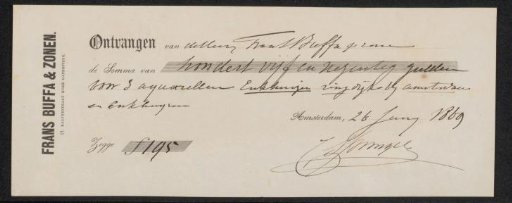 FRANS BUFFA & ZONEN.
Ontvangen van de Heer Frans Buffa & Zonen
de Somma van honderd vijf en negentig gulden
voor 3 aquarellen Enkhuizen ringdijk bij Amsterdam
en Enkhuizen
Amsterdam, 26 Juny 1869
Zegge ƒ195